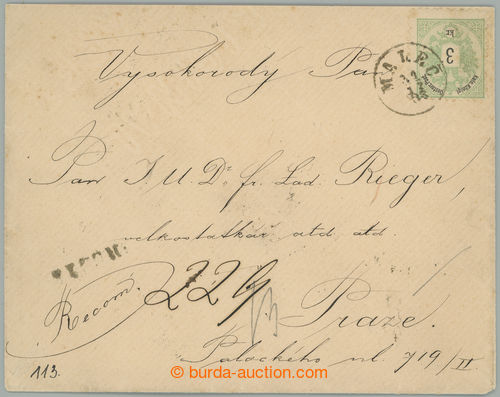 Vysokorody Pan
MALEČ
3
kr
Pan J. U. Dr. fr. Lad. Rieger,
velkostatkář atd atd.
RECOM.
Recom.
229
Praze.
Palackého ul. 719/II
113.
burda-auction.com